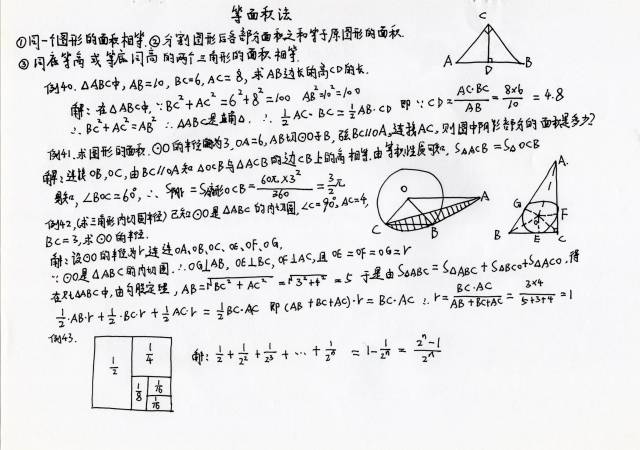 等面积法
①同一个图形的面积相等.②分割图形后各部分面积之和等于原图形的面积.
③同底等高或等底同高的两个三角形的面积相等.
例40. △ABC中, AB=10, BC=6, AC=8, 求AB边长的高CD的长.
解:在△ABC中, ∵BC²+AC²=6²+8²=100 AB²=10²=100
∴BC²+AC²=AB² ∴△ABC是直角△. ∴ 1/2 AC·BC = 1/2 AB·CD 即: CD = AC·BC/AB = 8×6/10 = 4.8
例41. 求图形的面积. ⊙O的半径为3, OA=6, AB切⊙O于B, 弦BC∥OA, 连接AC, 则图中阴影部分的面积是多少?
解:连接OB, OC, 由BC∥OA知△OCB与△ACB的边CB上的高相等, 由等积性质可知, S△ACB=S△OCB
易知, ∠BOC=60°, ∴ S阴=S扇形OCB = 60π×3²/360 = 3/2 π
例42, (求三角形内切圆半径) 已知⊙O是△ABC的内切圆, ∠C=90°, AC=4,
BC=3, 求⊙O的半径.
解:设⊙O的半径为r, 连接OA, OB, OC, OE, OF, OG,
∵⊙O是△ABC的内切圆. ∴OG⊥AB, OE⊥BC, OF⊥AC, 且OE=OF=OG=r
在Rt△ABC中, 由勾股定理, AB=√BC²+AC² = √3²+4² = 5 于是由S△ABC=S△ABO+S△BCO+S△ACO, 得
1/2·AB·r + 1/2·BC·r + 1/2 AC·r = 1/2 BC·AC 即 (AB+BC+AC)·r = BC·AC ∴ r = BC·AC/AB+BC+AC = 3×4/5+3+4 = 1
例43.
解: 1/2 + 1/2² + 1/2³ + … + 1/2ⁿ = 1 - 1/2ⁿ = 2ⁿ-1/2ⁿ
C
A
D
B
O
A
C
B
A
G
F
O
B
E
C
1/2
1/4
1/8
1/16
1/16